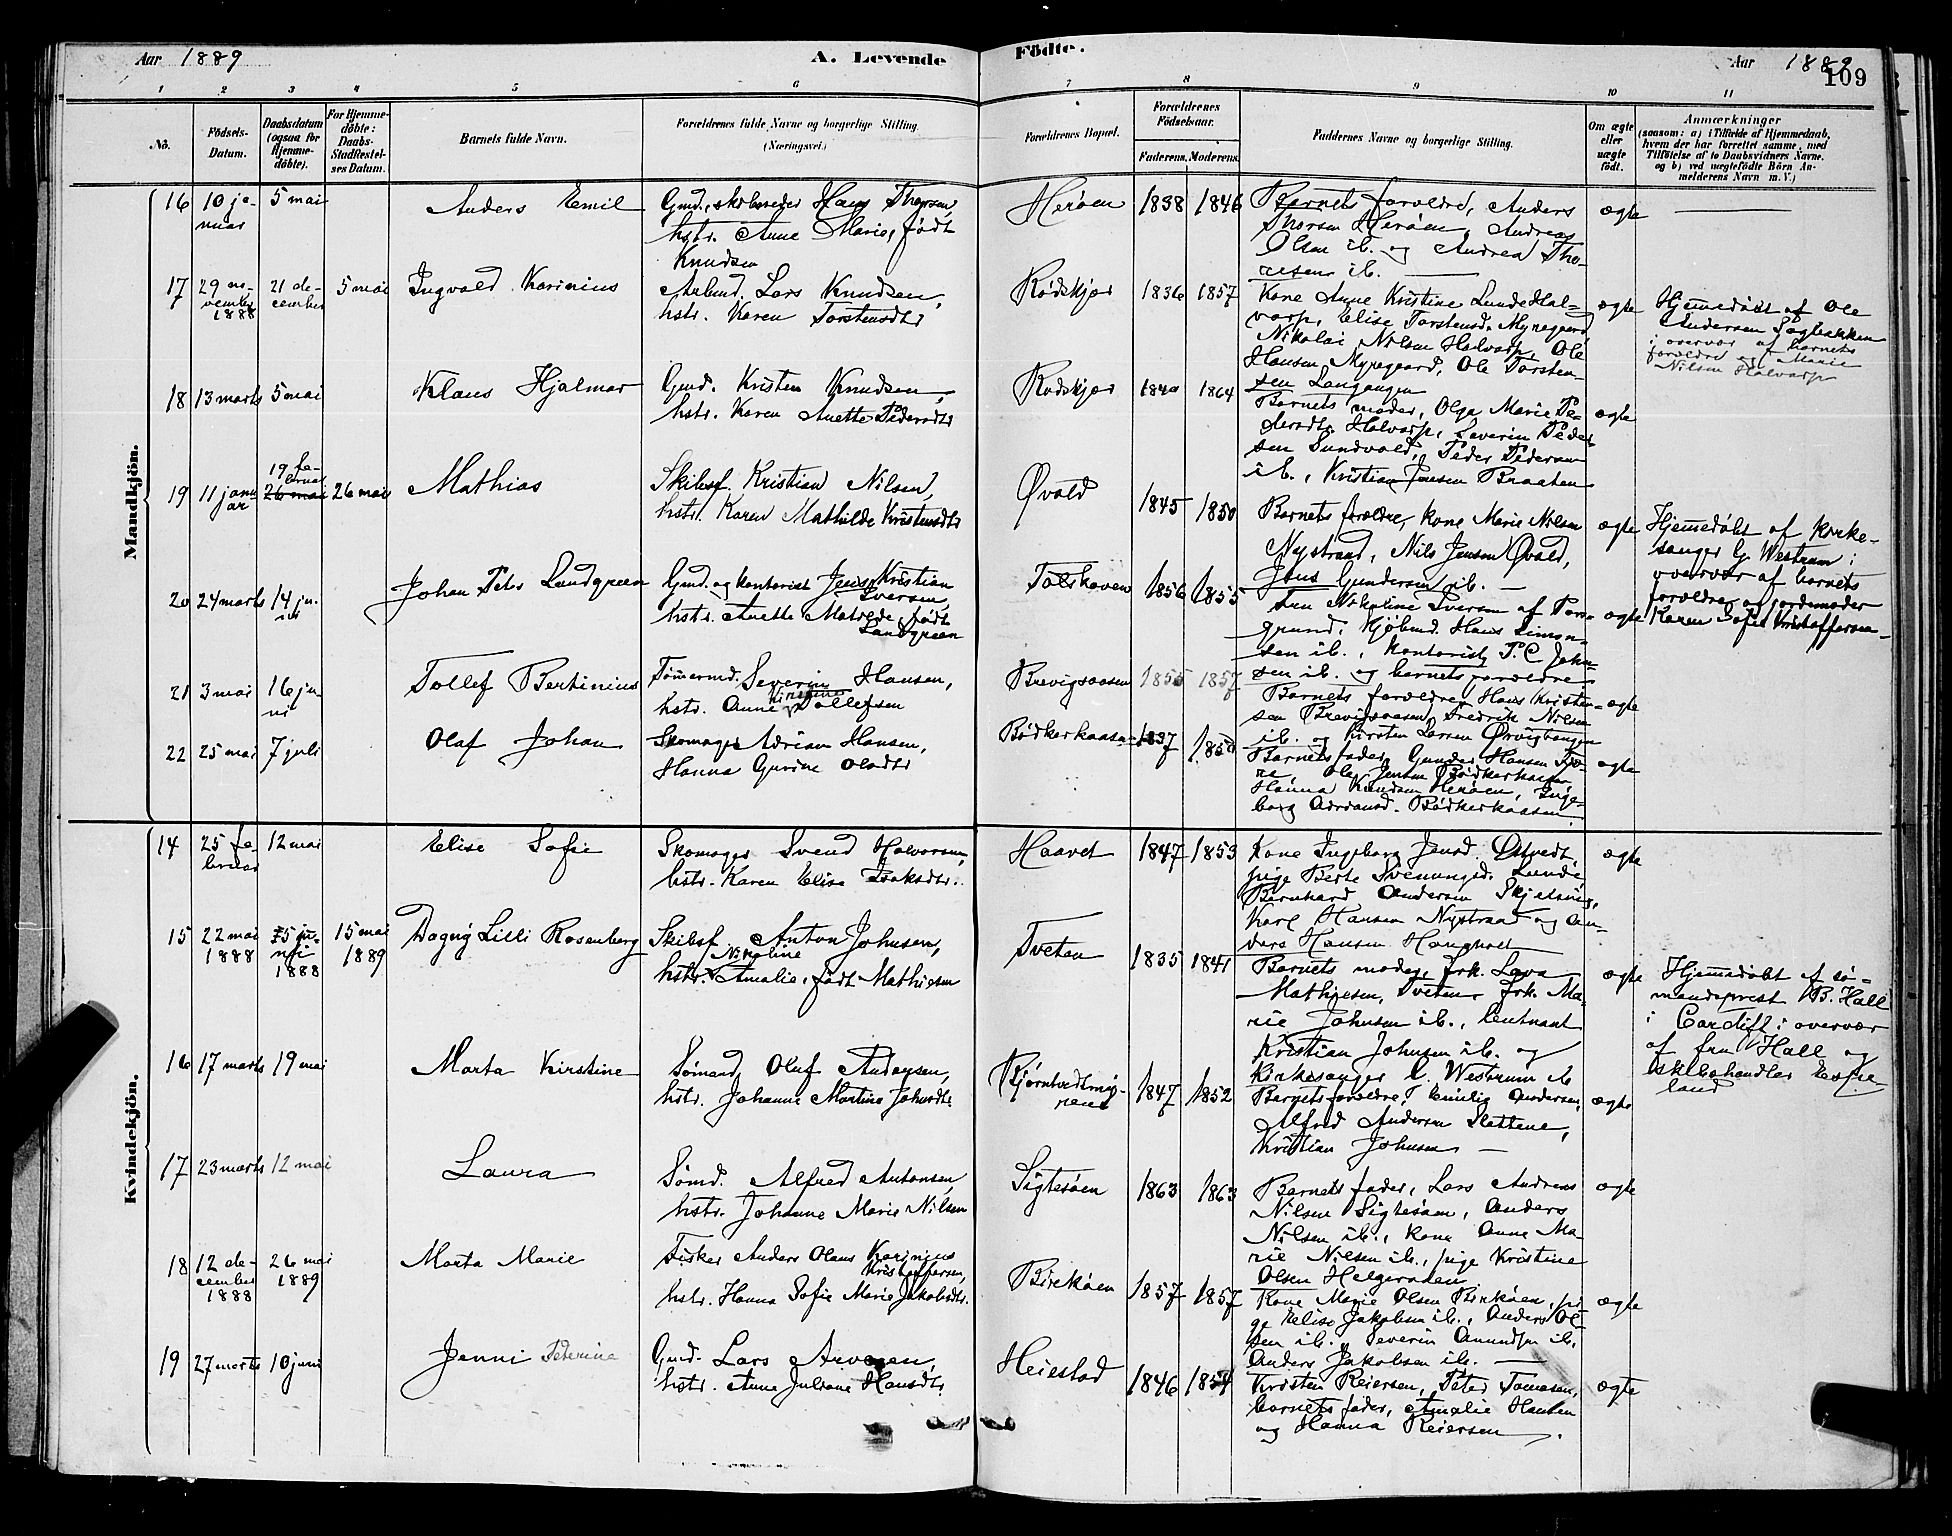 Aar 1889
A. Levende Födte.
Aar 1889
109
1 2 3 4 5 6 7 8 9 10 11
No.
Födsels-
Datum.
Daabsdatum
(ogsaa for
Hjemme-
döbte).
For Hjemme-
döbte:
Daabs-
Stadfæstel-
ses Datum.
Barnets fulde Navn.
Forældrenes fulde Navne og borgerlige Stilling.
(Næringsvei.)
Forældrenes Bopæl.
Forældrenes
Födselsaar.
Faderens. Moderens.
Faddernes Navne og borgerlige Stilling.
Om ægte
eller
uægte
født.
Anmærkninger
(saasom: a) i Tilfælde af Hjemmedaab,
hvem der har forrettet samme, med
Tilföielse af to Daabsvidners Navne,
og b) ved uægtefödte Börn An-
melderens Navn m. V.)
Mandkjön.
16
10 ja-
nuar
5 mai
Anders Emil
Gmd., skibsreder Hans Thorsen,
hstr. Anne Marie, født
Knudsen
Herøen
1838
1846
Barnets forældre, Anders
Thorsen Herøen, Andreas
Olsen ib. og Andrea Tho-
resen ib.
ægte
17
29 no-
vember
1888
21 de-
cember
5 mai
Ingvald Karinius
Arbmd. Lars Knudsen,
hstr. Karen Torstensdtr
Rødskjær
1836
1857
Kone Anne Kristine Lunde Hal-
varp, Elise Torstensd. Myregaard,
Nikolai Nilsen Halvarp, Ole
Hansen Myregaard, Ole Torsten-
sen Langangen
ægte
Hjemmedøbt af Ole
Andersen Sagbakken
i overvær af barnets
forældre og Marie
Nilsen Halvarp
18
13 marts
5 mai
Klaus Hjalmar
Gmd. Kristen Knudsen,
hstr. Karen Anette Pedersdtr
Rødskjær
1840
1864
Barnets moder, Olga Marie Pe-
dersdtr. Halvarp, Severin Peder-
sen Sundvald, Peder Pedersen
ib., Kristian Jensen Braaten
ægte
19
11 janu
ar
19 fe-
bruar
26 mai
26 mai
Mathias
Skibsf. Kristian Nilsen,
hstr. Karen Mathilde Kristensdtr
Øvald
1845
1850
Barnets forældre, kone Marie Nilsen
Nystrand, Nils Jensen Øvald,
Jens Gundersen ib.
ægte
Hjemmedøbt af kirke-
sanger G. Westrum i
overvær af barnets
forældre og jordemoder
Karen Sofie Kristoffersen
20
24 marts
14 ju-
ni
Johan Peter Lundgreen
Gmd. og kontorist Jens Kristian
Iversen,
hstr. Anette Matrede, født
Lundgreen
Tolskoven
1856
1855
Fru Nikoline Iversen af Pors-
grund, Kjøbmd. Hans Simon-
sen ib., kontorist P. C. John-
sen ib. og barnets forældre
ægte
21
3 mai
16 ju-
ni
Tollef Bertinius
Tømmermd. Severin Hansen,
hstr. Anne Kirstine Tollefsen
Brevigsaasen
1855
1857
Barnets forældre, Hans Kristen-
sen Brevigsaasen, Fredrik Nilsen
ib. og Kirsten Larsen Ørvigbangen
ægte
22
25 mai
7 juli
Olaf Johan
Skomager Adrian Hansen,
Hanna Gurine Olsdtr
Bødkerkaasa
1837
1850
Barnets fader, Gunder Hansen
Ole Jensen Bødkerkaasen
Hanna Knudsen Herøen, Inge-
borg Adriansd. Bødkerkaasen.
ægte
Kvindekjön.
14
25 fe-
bruar
12 mai
Elise Sofie
Skomager Svend Halvorsen,
hstr. Karen Elise Isaksdtr.
Haavet
1847
1853
Kone Ingeborg Jensd. Østvedt,
pige Berte Svenungsd. Lunde,
Bernhard Andersen Skjelsvig,
Karl Hansen Nystrand og An-
ders Hansen Hougholt
ægte
15
22 mai
1888
25 ju-
ni
1888
15 mai
1889
Dagny Lilli Rosenberg
Skibsf. Anton Johnsen,
Nikoline
hstr. Amalie, født Mathiesen
Tveten
1835
1841
Barnets moder, frk. Lava
Mathiesen, Tveten, frk. Ma-
rie Johnsen ib., leutnant
Kristian Johnsen ib. og
Kirkesanger G. Westrum ib.
ægte
Hjemmedøbt af sø-
mandsprest B. Hall
i Cardiff i overvær
af fru Hall og
skibshandler Espe-
land
16
17 marts
19 mai
Marta Kirstine
Sømand Oluf Andersen,
hstr. Johanne Martine Johnsdtr.
Bjørntvedtmy-
rene
1847
1852
Barnets forældre, Emilie Andersen,
Alfred Andersen Slettene,
Kristian Johnsen
ægte
17
23 marts
12 mai
Laura
Sømd. Alfred Antonsen,
hstr. Johanne Marie Nilsen
Sigtesøen
1863
1863
Barnets fader, Lars Andreas
Nilsen Sigtesøen, Anders
Nilsen ib., kone Anne Ma-
rie Nilsen ib., pige Kristine
Olsen Helgeraaen
ægte
18
12 de-
cember
1888
26 mai
1889
Marta Marie
Fisker Anders Olaus Karinius
Kristoffersen,
hstr. Hanna Sofie Marie Jakobsdtr.
Birkøen
1857
1857
Kone Marie Olsen Birkøen, pi-
ge Elise Jakobsen ib., Anders Ol-
sen ib. og Severin Amundsen ib.,
Anders Jakobsen ib.
ægte
19
27 marts
10 juni
Jenni Peterine
Gmd. Lars Arvesen,
hstr. Anne Juliane Hansdtr
Heiestad
1846
1854
Kirsten Reiersen, Peter Tomasen,
barnets fader, Amalie Hansen
og Hanna Reiersen.
ægte